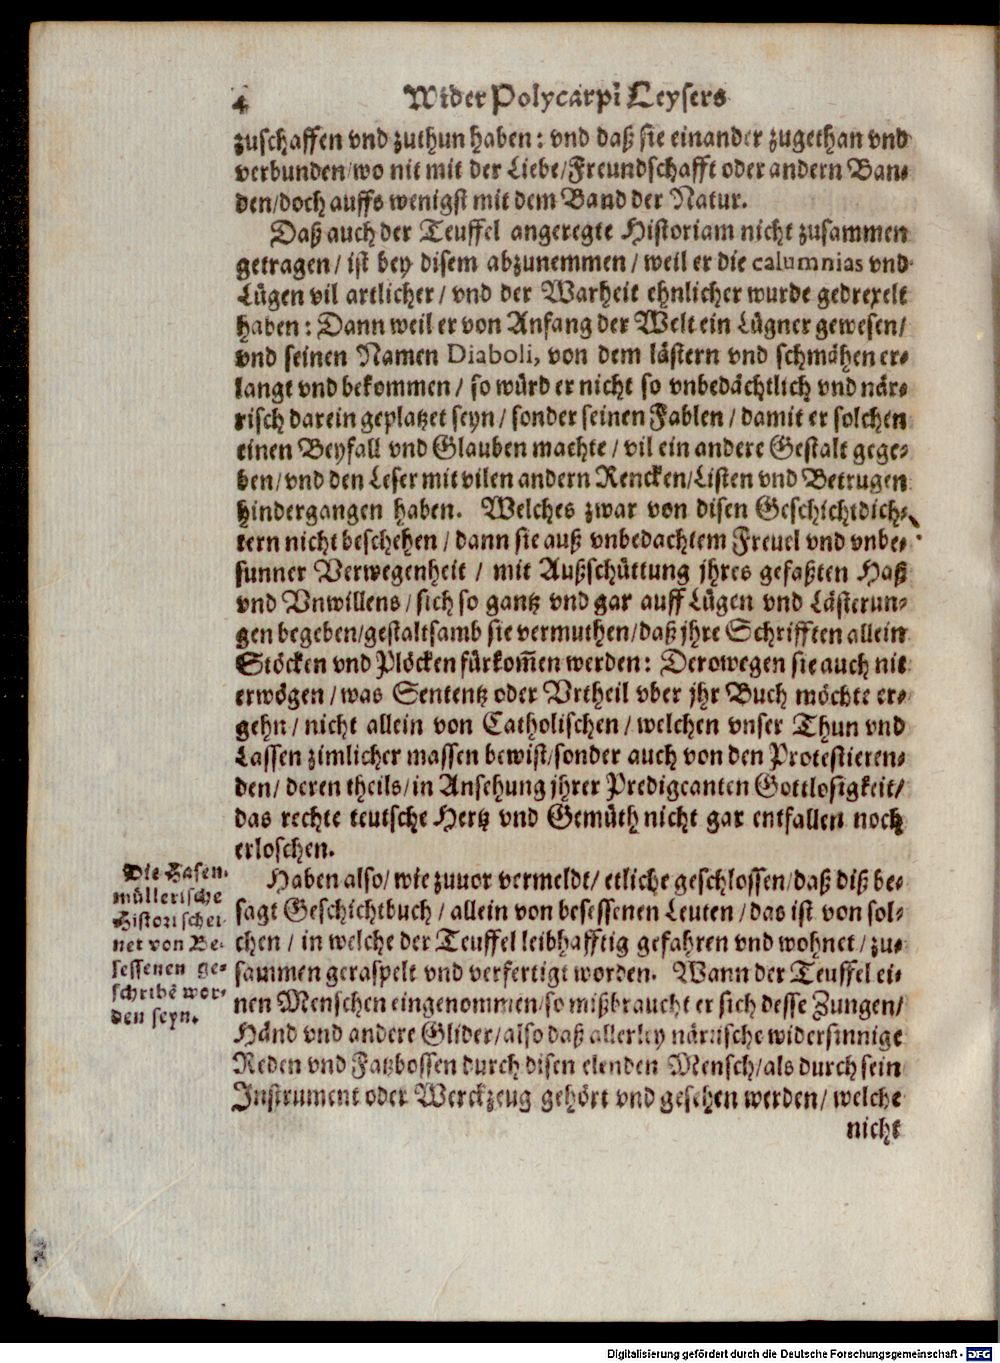 4 Wider Polycarpi Leysers
zuschaffen vnd zuthun haben: vnd daß sie einander zugethan vnd
verbunden/wo nit mit der Liebe/Freundschafft oder andern Ban-
den/doch auffs wenigst mit dem Band der Natur.
Daß auch der Teuffel angeregte Historiam nicht zusammen
getragen/ ist bey disem abzunemmen/ weil er die calumnias vnd
Lügen vil artlicher/ vnd der Warheit ehnlicher wurde gedrexelt
haben: Dann weil er von Anfang der Welt ein Lügner gewesen/
vnd seinen Namen Diaboli, von dem lästern vnd schmähen er-
langt vnd bekommen/ so würd er nicht so vnbedächtlich vnd när-
risch darein geplatzet seyn/ sonder seinen Fablen/ damit er solchen
einen Beyfall vnd Glauben machte/ vil ein andere Gestalt gege-
ben/vnd den Leser mit vilen andern Rencken/Listen vnd Betrugen
hindergangen haben. Welches zwar von disen Geschichtdich-
tern nicht beschehen/ dann sie auß vnbedachtem Freuel vnd vnbe-
sunner Verwegenheit/ mit Außschüttung jhres gefaßten Haß
vnd Vnwillens/sich so gantz vnd gar auff Lügen vnd Lästerun-
gen begeben/gestaltsamb sie vermuthen/daß jhre Schrifften allein
Stöcken vnd Plöcken fürkom̃en werden: Derowegen sie auch nit
erwögen/was Sententz oder Vrtheil vber jhr Buch möchte er-
gehn/ nicht allein von Catholischen/ welchen vnser Thun vnd
Lassen zimlicher massen bewist/sonder auch von den Protestieren-
den/ deren theils/in Ansehung jhrer Predigcanten Gottlosigkeit/
das rechte teutsche Hertz vnd Gemüth nicht gar entfallen noch
erloschen.
Die Hasen-
müllerische
Histori sey ei-
net von Be-
sessenen ge-
schribẽ wor-
den seyn.
Haben also/ wie zuuor vermeldt/ etliche geschlossen/daß diß be-
sagt Geschichtbuch/ allein von besessenen Leuten/das ist von sol-
chen/ in welche der Teuffel leibhafftig gefahren vnd wohnet/ zu-
sammen geraspelt vnd verfertigt worden. Wann der Teuffel ei-
nen Menschen eingenommen/so mißbraucht er sich desse Zungen/
Händ vnd andere Glider/also daß allerley närrische widersinnige
Reden vnd Fatzbossen durch disen elenden Mensch/als durch sein
Instrument oder Werckzeug gehört vnd gesehen werden/ welche
nicht
Digitalisierung gefördert durch die Deutsche Forschungsgemeinschaft - DFG